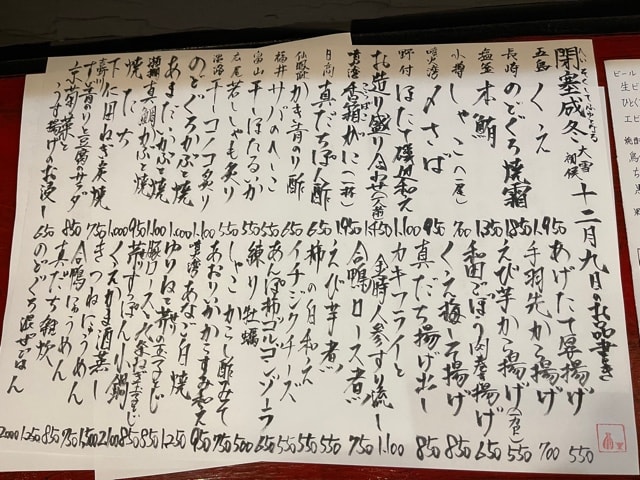 閉塞成冬 大雪 初候 十二月九日のお品書き
へいそくしてふゆとなる
五島 くえ 1.950
長崎 のどぐろ焼霜 1.850
塩釜 本鮪 1.350
小樽 しゃこ(一尾) 700
〆さば 950
野付 ほたて磯辺和え 1.100
お造り盛り合わせ
香箱がに(一杯) 1.950
日高 真だちぽん酢 650
かき 青のり酢 650
福井 サバのへしこ 550
富山 干しほたるいか 550
広尾 干ししゃも炙り 550
干しコノコ炙り
のどぐろかぶと焼 1.000
あまだいかぶと焼 1.100
真鯛かぶと焼 950
焼たち 1.100
下仁田ねぎ炭焼
すい青のりと豆腐のサラダ 850
京菊菜とうす揚げのお浸し 650
あげたて厚揚げ 550
手羽先から揚げ 700
えび芋から揚げ 550
和田ごぼう肉巻揚げ 650
くえ梅しそ揚げ 850
真だち揚げ出し 850
カキフライ 1.100
金時人参すり流し
合鴨ロース煮 750
えび芋煮 550
柿の白和え 550
イチジクチーズ 550
あんぽ柿ゴルゴンゾーラ 650
練り牡蠣 500
しゃこ かにし酢みそ 750
あおりいかからすみ和え 950
あなご白焼 1.250
ゆりねと芹の玉子とじ 850
豚ロース
帯すっぽん小鍋 2.100
くえかま酒蒸し 1.500
きつねにゅうめん 750
合鴨にゅうめん 850
真だち雑炊 1.250
のどぐろ混ぜごはん 2.000
ビール
生ビ
ひとく
エビ
焼酎